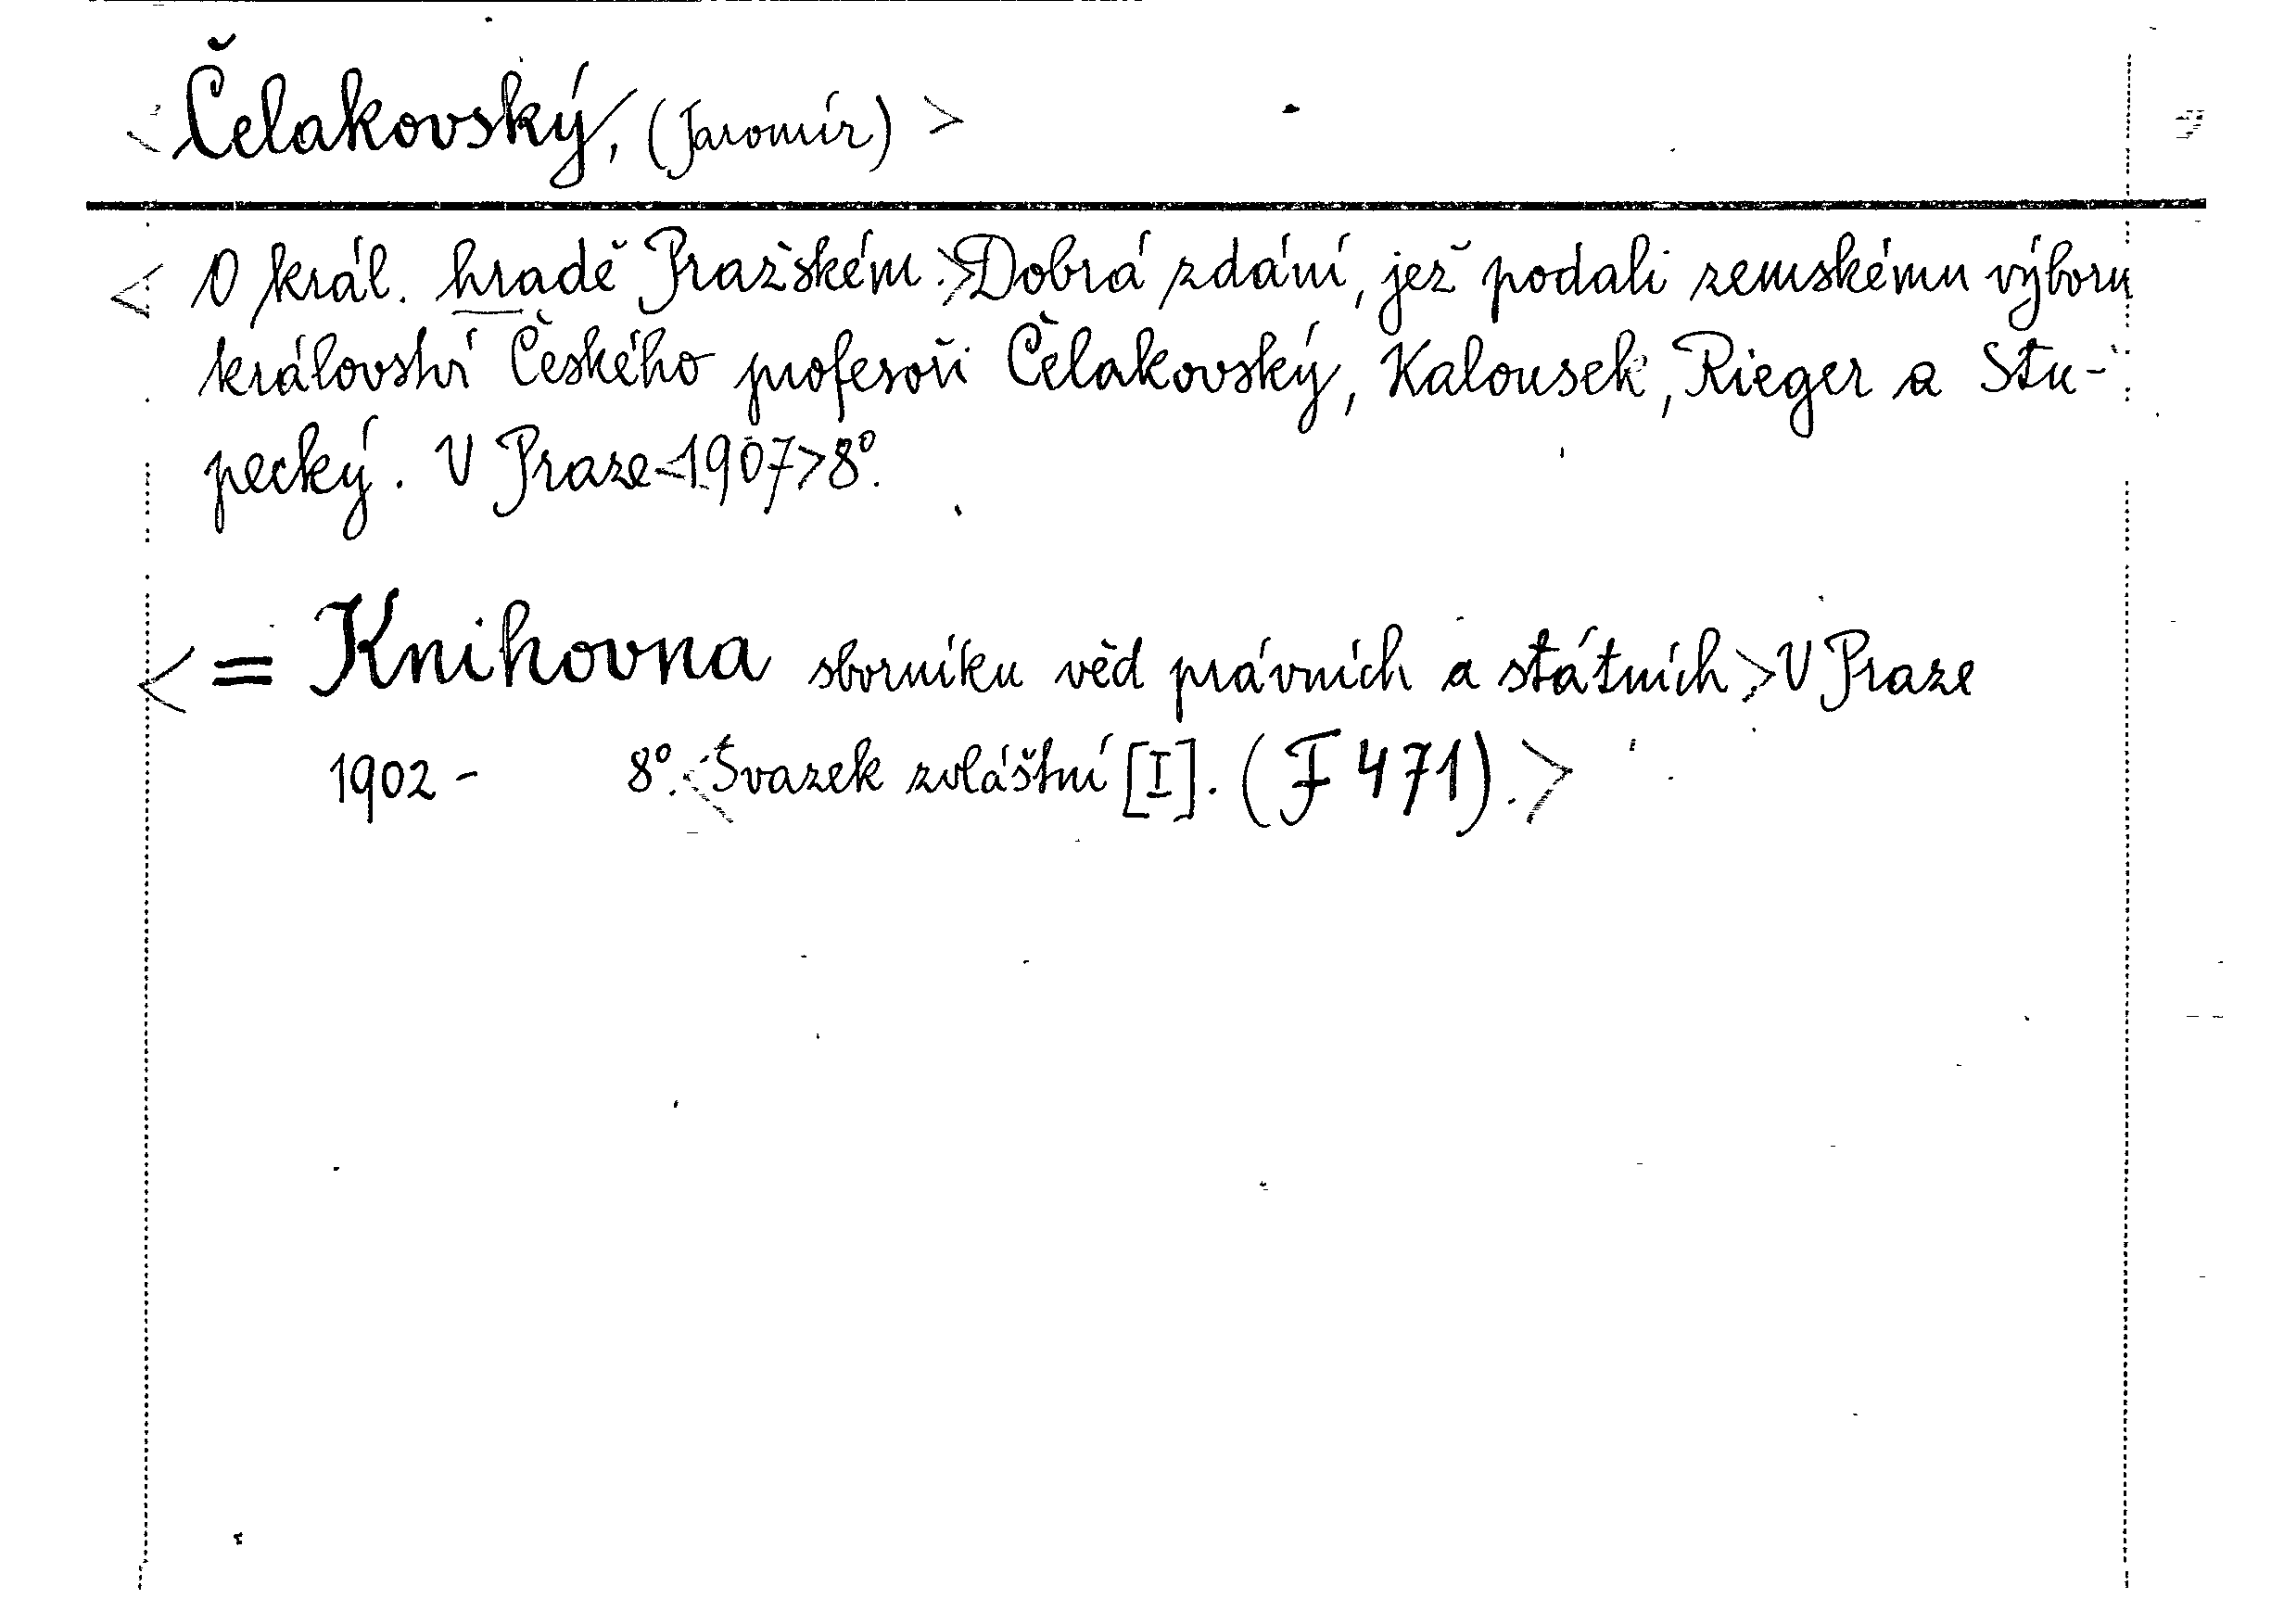 <Čelakovský, (Jaromír)>
<O král. hradě Pražském.>Dobrá zdání, jež podali zemskému výboru
království Českého profesoři Čelakovský, Kalousek, Rieger a Stu-
pecký. V Praze<1907>8°.
<= Knihovna sborníku věd právních a státních>V Praze
1902- 8°.<Svazek zvláštní [I]. (F 471).>